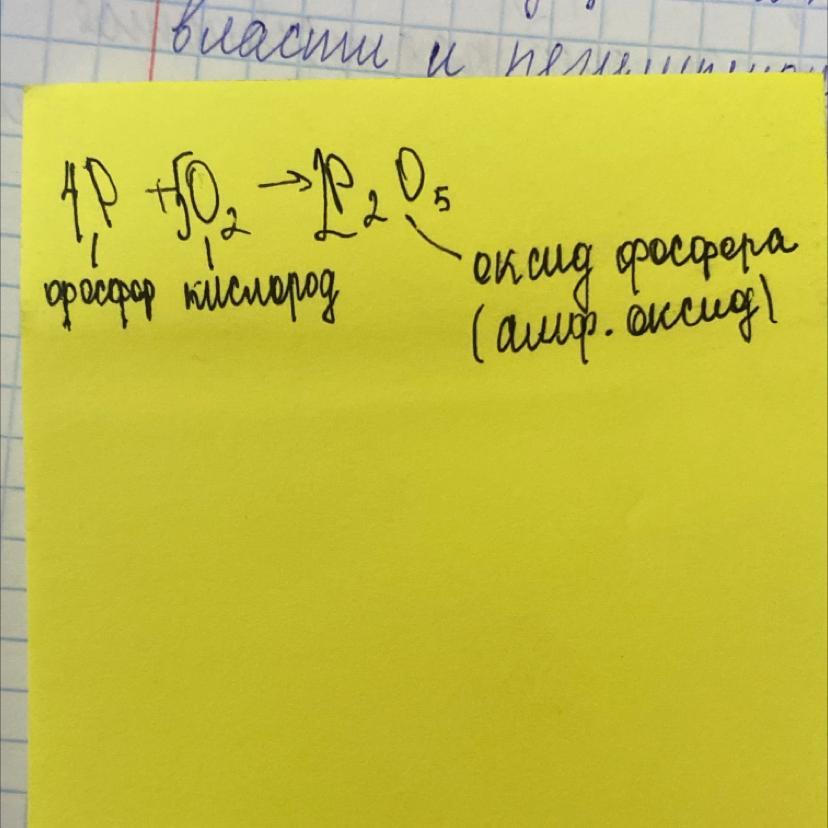 власти и
4P + 5O₂ → 2P₂O₅
фосфор кислород
оксид фосфера
(амф. оксид)